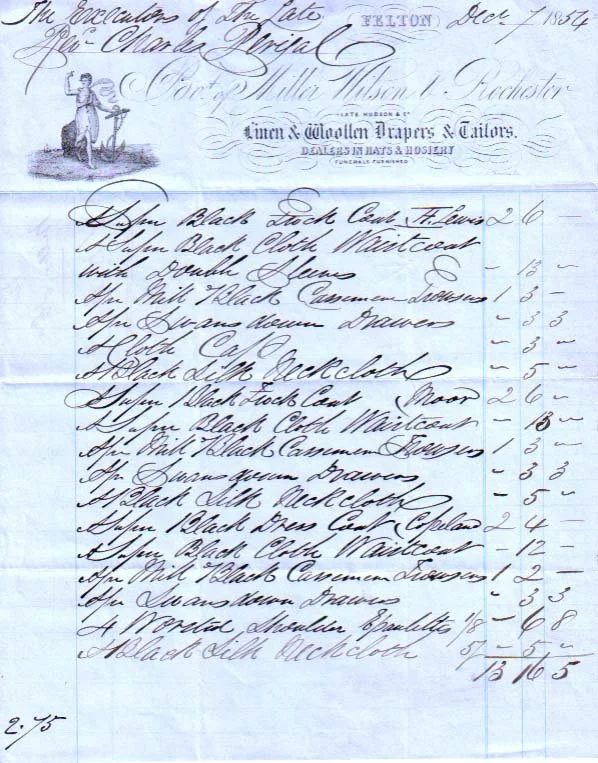 The Executors of The Late FELTON Decr 7 1854
Revd Charles Perigal
Bot. of Miller Wilson & Rochester
LATE HUDSON & Co
Linen & Woollen Drapers & Tailors.
DEALERS IN HATS & HOSIERY
FUNERALS FURNISHED
A Super Black Frock Coat, H. Lewis 2 6 -
A Super Black Cloth Waistcoat
with Double Sleeves - 13 -
A pr Mill'd Black Cassimere Trousers 1 3 -
A pr Swansdown Drawers - 3 3
A Cloth Cap - 3 -
A Black Silk Neckcloth - 5 -
A Super Black Frock Coat, Moor 2 6 -
A Super Black Cloth Waistcoat - 13 -
A pr Mill'd Black Cassimere Trousers 1 3 -
A pr Swansdown Drawers - 3 3
A Black Silk Neckcloth - 5 -
A Super Black Dress Coat, Copeland 2 4 -
A Super Black Cloth Waistcoat - 12 -
A pr Mill'd Black Cassimere Trousers 1 2 -
A pr Swansdown Drawers - 3 3
4 Worsted Shoulder Epaulettes 1/8 - 6 8
A Black Silk Neckcloth 5/ - 5 -
13 16 5
2.75